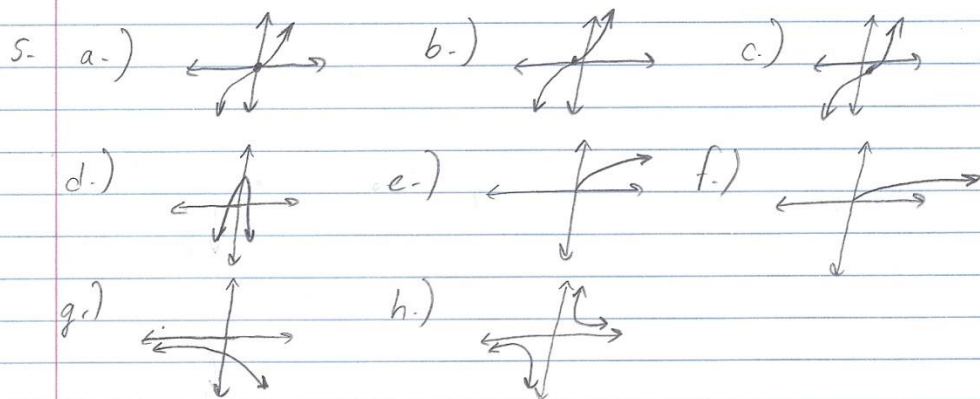 5. a.) b.) c.)
d.) e.) f.)
g.) h.)